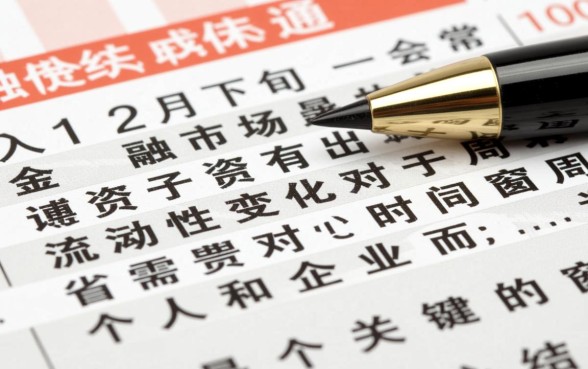 通
100
入12月下旬一会常
金 融市场最
资子资有出
流动性变化对于周
省需贵对心时间窗周
个人和企业而;....
个关键的窗
结